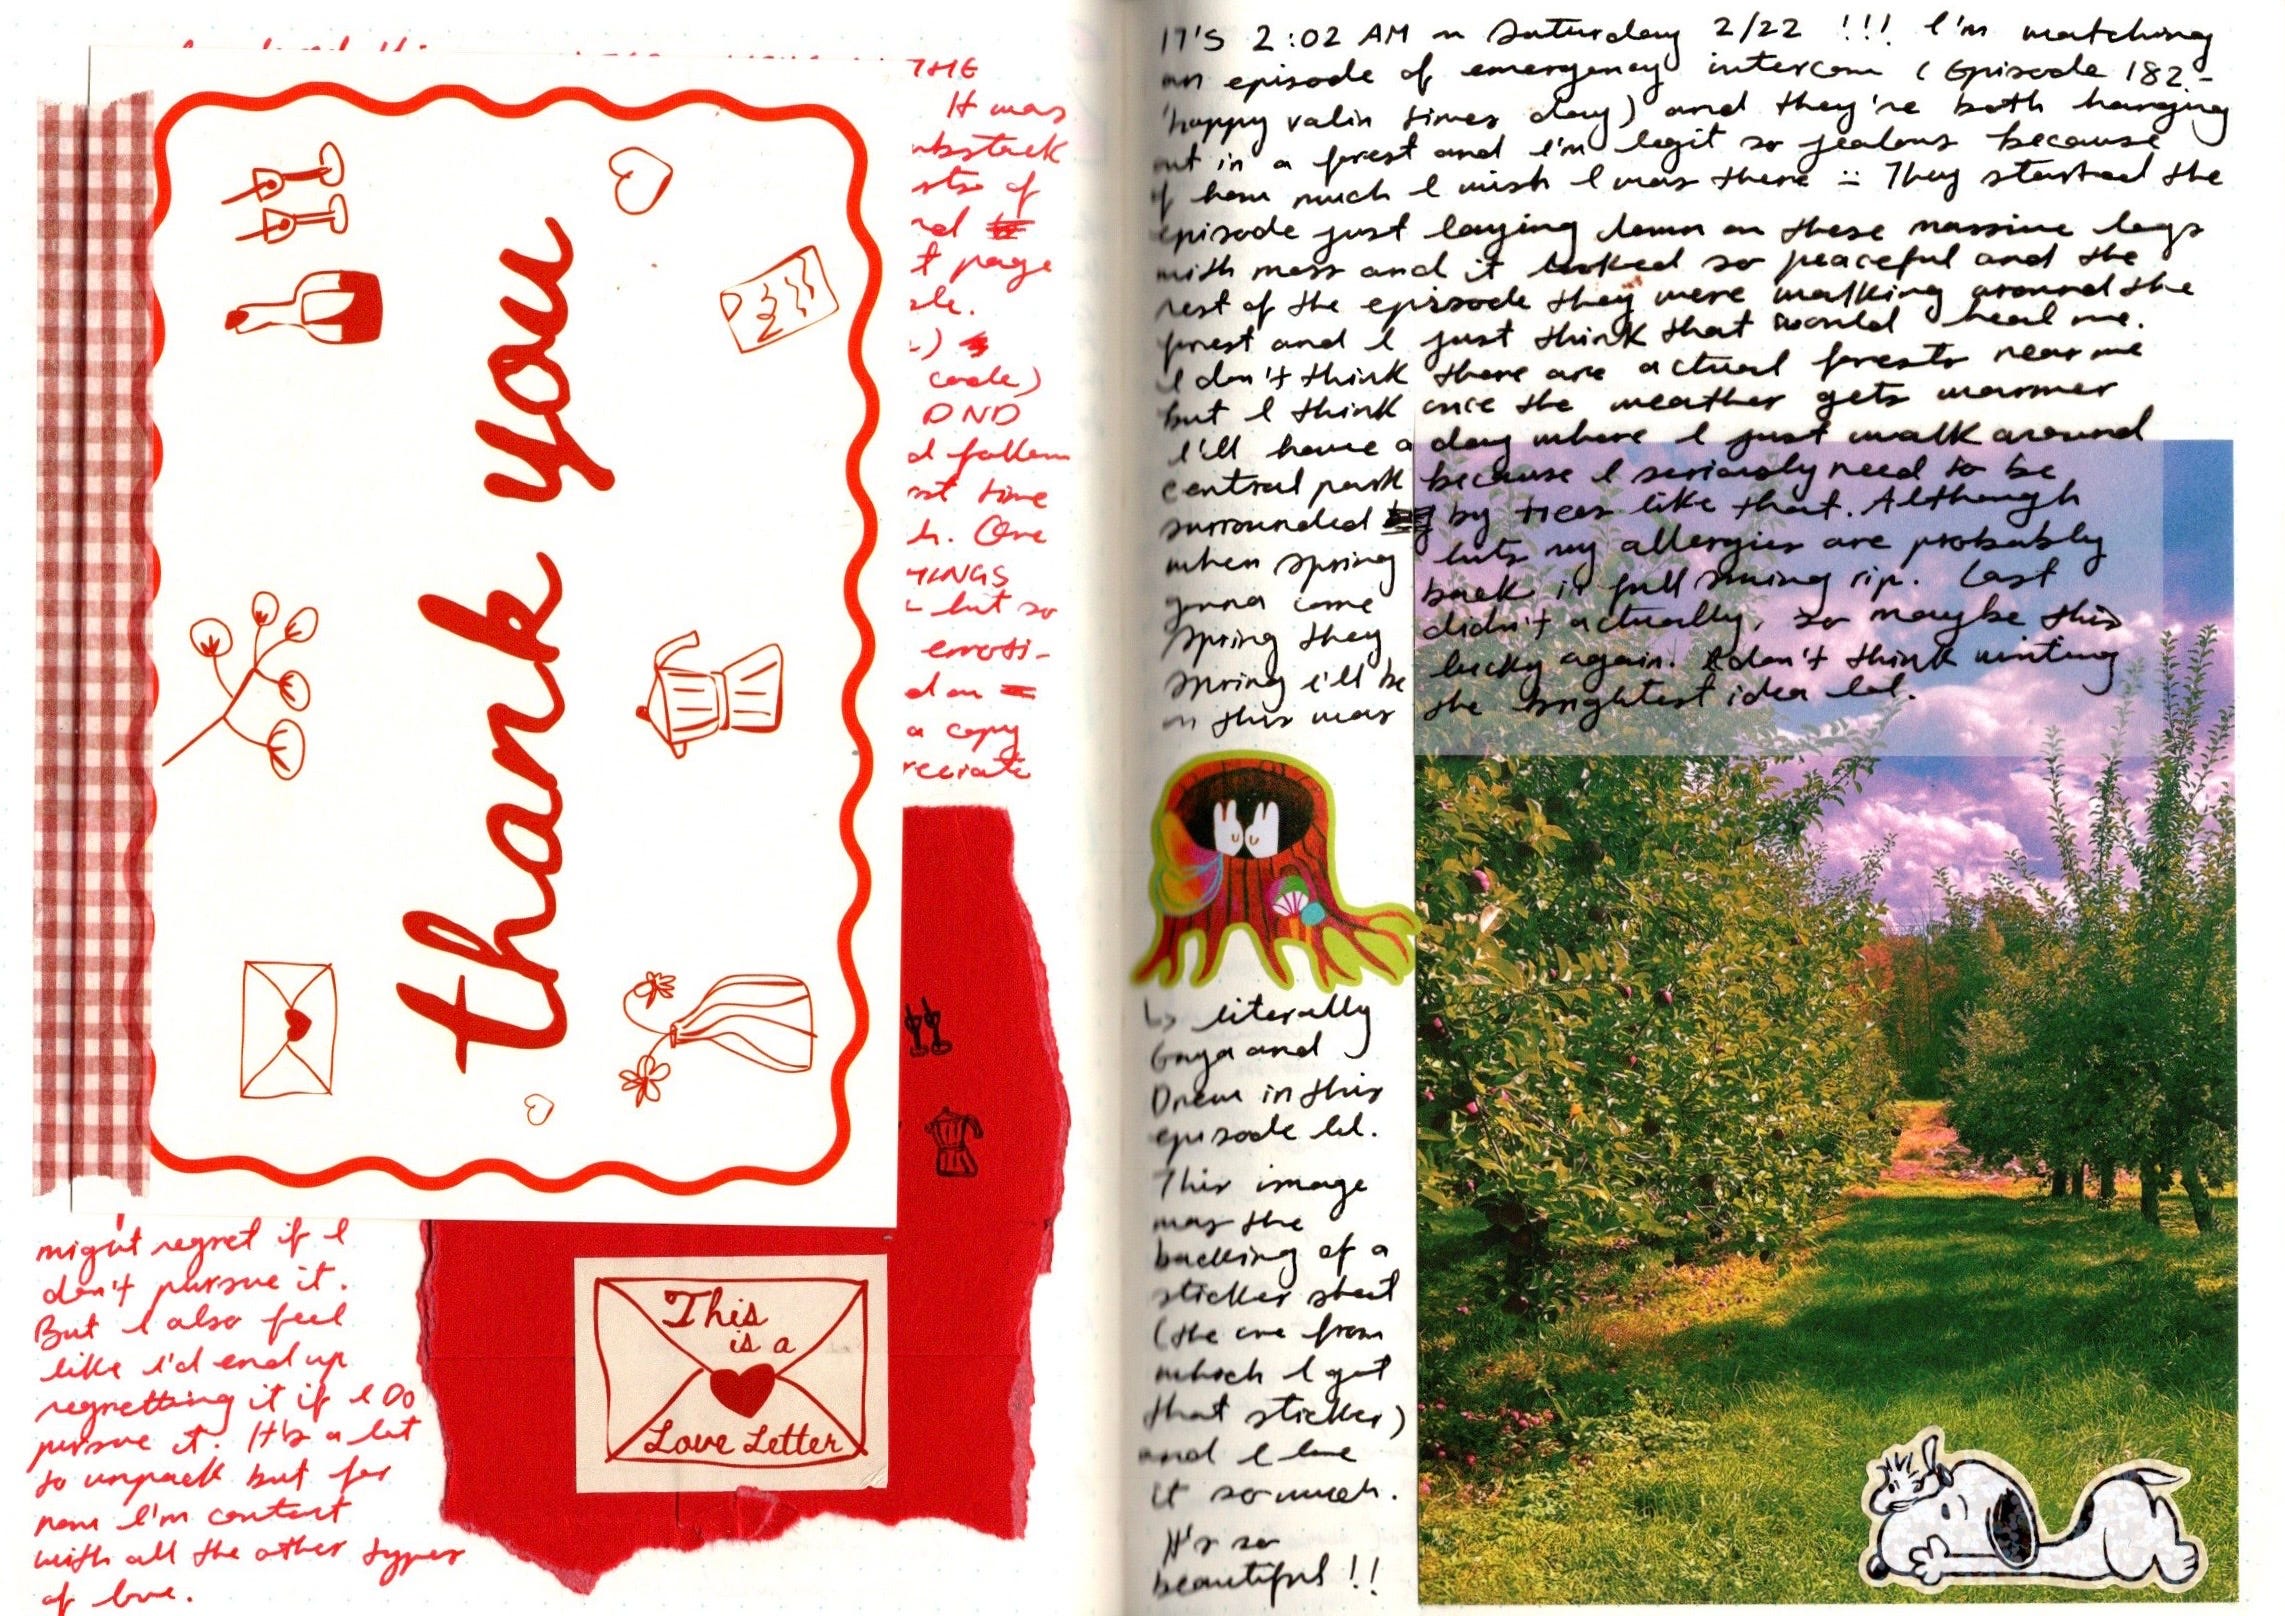 THE
It was
of
t page
code)
DND
d follow
st time
h. One
but so
emoti-
a copy
reciate
thank you
might regret if I
don't pursue it.
But I also feel
like I'd end up
regretting it if I DO
pursue it. It's a lot
to unpack but for
now I'm content
with all the other types
of love.
This
is a
Love Letter
IT'S 2:02 AM on Saturday 2/22 !!! I'm watching
an episode of emergency intercom (Episode 182 -
'happy valin times day) and they're both hanging
out in a forest and I'm legit so jealous because
of how much I wish I was there :: They started the
episode just laying down on these massive logs
with moss and it looked so peaceful and the
rest of the episode they were walking around the
forest and I just think that would heal me.
I don't think there are actual forests near me
but I think once the weather gets warmer
I'll have a day where I just walk around
central park because I seriously need to be
surrounded by trees like that. Although
when spring hits my allergies are probably
gonna come back in full swing rip. Last
spring they didn't actually, so maybe this
spring I'll be lucky again. I don't think writing
on this was the brightest idea lol.
↳ literally
Enya and
Drew in this
episode lol.
This image
was the
backing of a
sticker sheet
(the one from
which I got
that sticker)
and I love
it so much.
It's so
beautiful!!